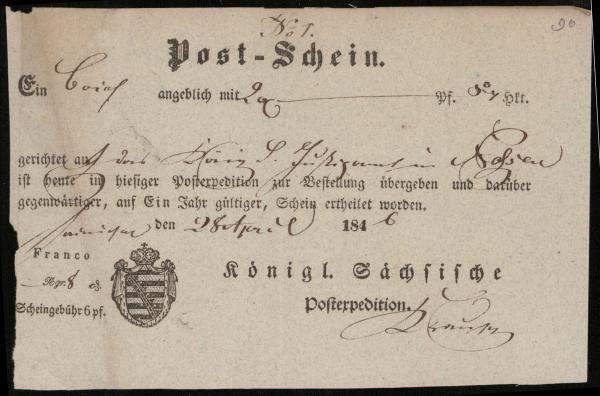 No 1.
90
Post-Schein.
Ein Brief angeblich mit Pf. Lkt.
gerichtet an das Königl. S. Justizamt in Nossen
ist heute in hiesiger Postexpedition zur Bestellung übergeben und darüber
gegenwärtiger, auf Ein Jahr gültiger, Schein ertheilet worden.
Hainichen den 28 April 1846
Franco
Ngr. 8 pf.
Scheingebühr 6 pf.
Königl. Sächsische
Postexpedition.